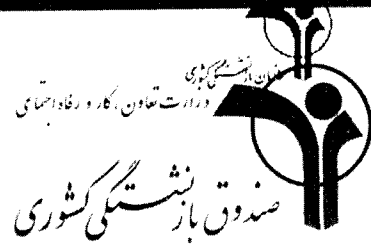 سازمان بازنشستگی کشوری
وزارت تعاون، کار و رفاه اجتماعی
صندوق بازنشستگی کشوری